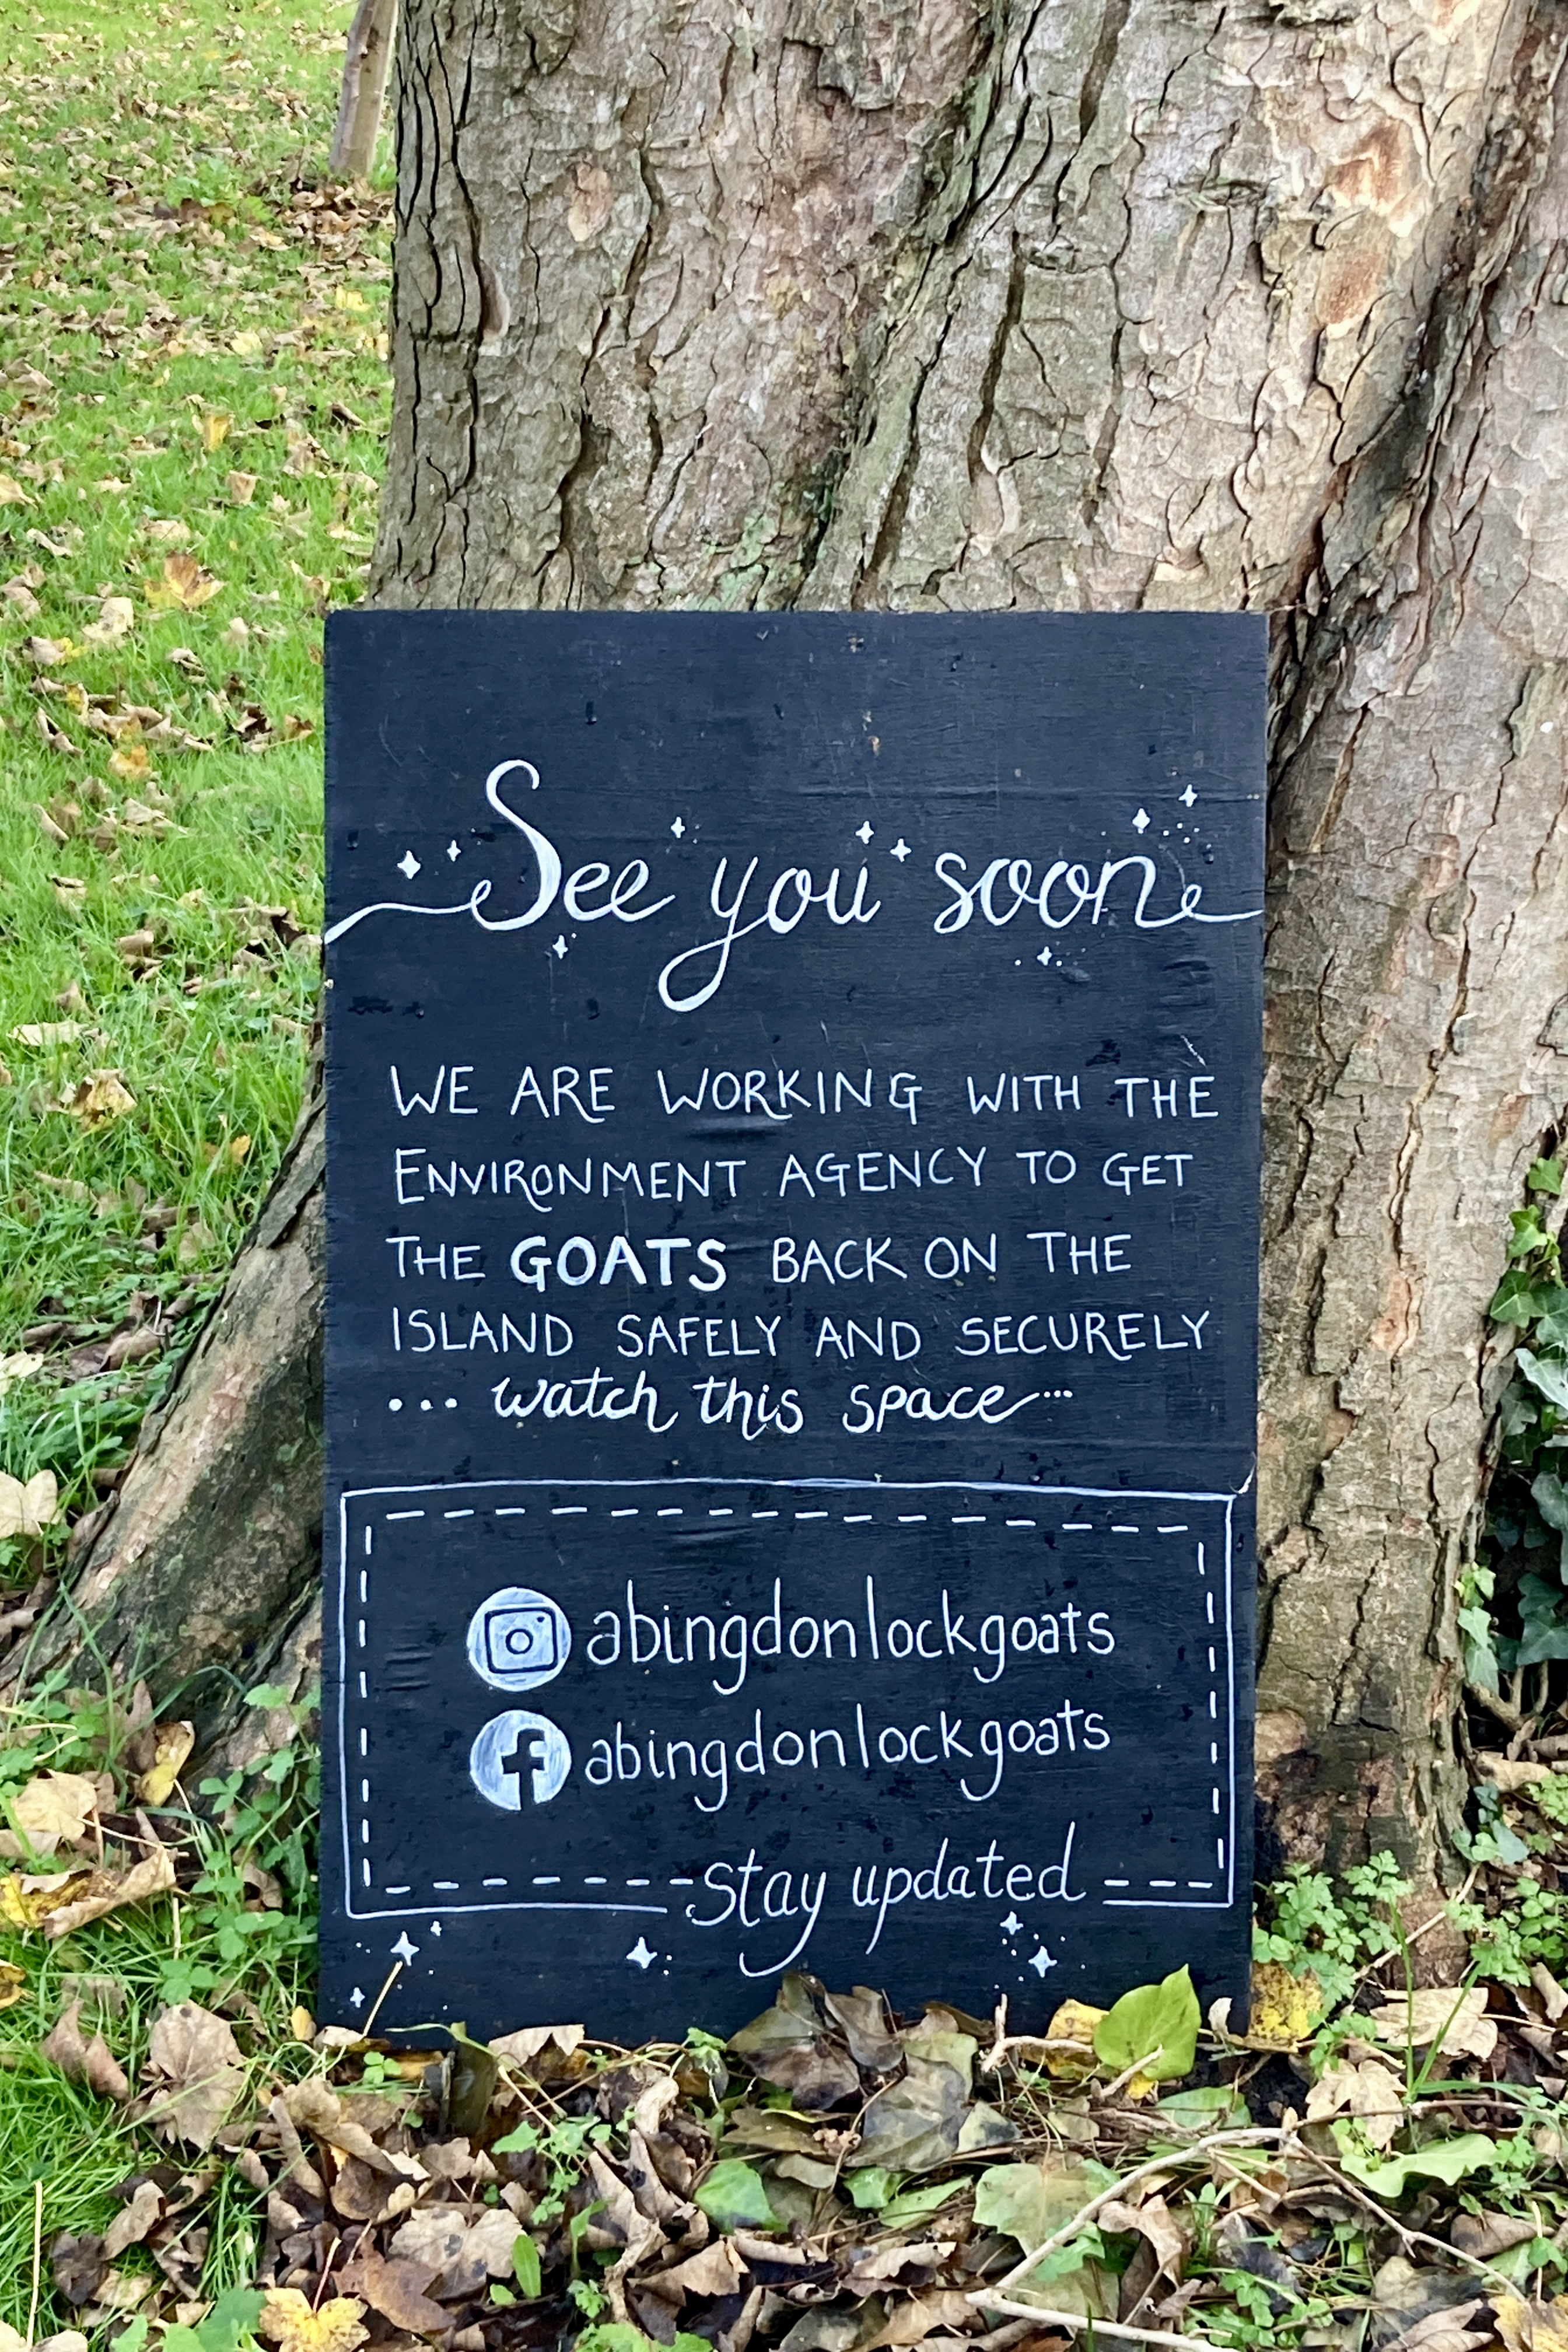 See you soon
WE ARE WORKING WITH THE
ENVIRONMENT AGENCY TO GET
THE GOATS BACK ON THE
ISLAND SAFELY AND SECURELY
... watch this space...
abingdonlockgoats
abingdonlockgoats
stay updated